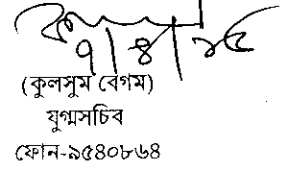 ৭/৪/১৫
(কুলসুম বেগম)
যুগ্মসচিব
ফোন-৯৫৪০৮৬৪